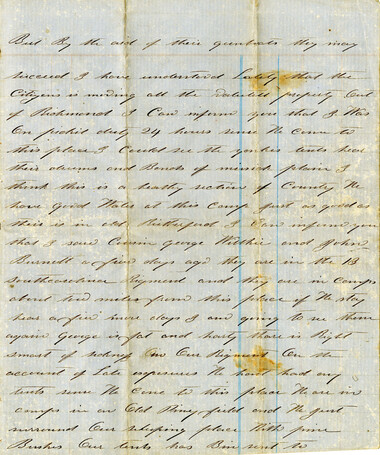 But By the aid of their gunboats they may
succeed I have understood Lately that the
Citizens is moving all the valuable property Out
of Richmond I Can inform you that I Was
On picket duty 24 hours since We Come to
this place I Could see the yankes tents hear
their drums and Bands of musick plain I
think this is a healthy section of County We
have good Water at this Camp just as good as
their is in old Rutherford I Can inform you
that I saw Cousin george and John
Burnett a few days ago they are in the 13
southcarolina Rigment and they are in Camps
about miles from this place if We stay
hear a few more days I am going to see them
again George is fat and harty thare is Right
smart of sickness in Our Rigment On the
account of Late exposures We hant had any
tents since We Come to this place We are in
camps in an Old Piney field and We just
surround Our sleeping place With pine
Bushes Our tents has Bin sent to